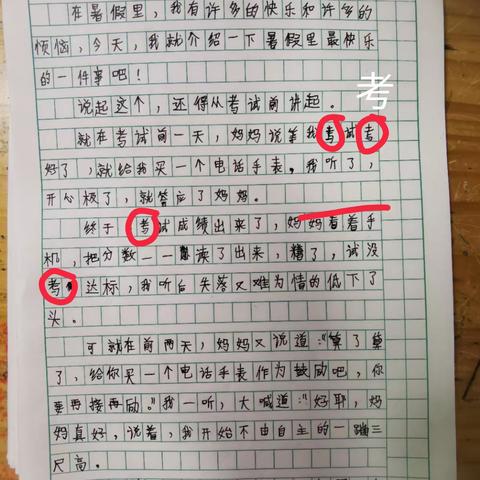 在暑假里，我有许多的快乐和许多的
烦恼，今天，我就介绍一下暑假里最快乐
的一件事吧！
考
说起这个，还得从考试前讲起。
就在考试前一天，妈妈说等我考试考
好了，就给我买一个电话手表。我听了，
开心极了，就答应了妈妈。
终于，考试成绩出来了，妈妈看着手
机，把分数一一读了出来，糟了，试没
考达标，我听后失落又难为情的低下了
头。
可就在前两天，妈妈又说道：“算了算
了，给你买一个电话手表作为鼓励吧，你
要再接再励。”我一听，大喊道：“好耶，妈
妈真好，说着，我开始不由自主的一蹦三
尺高。